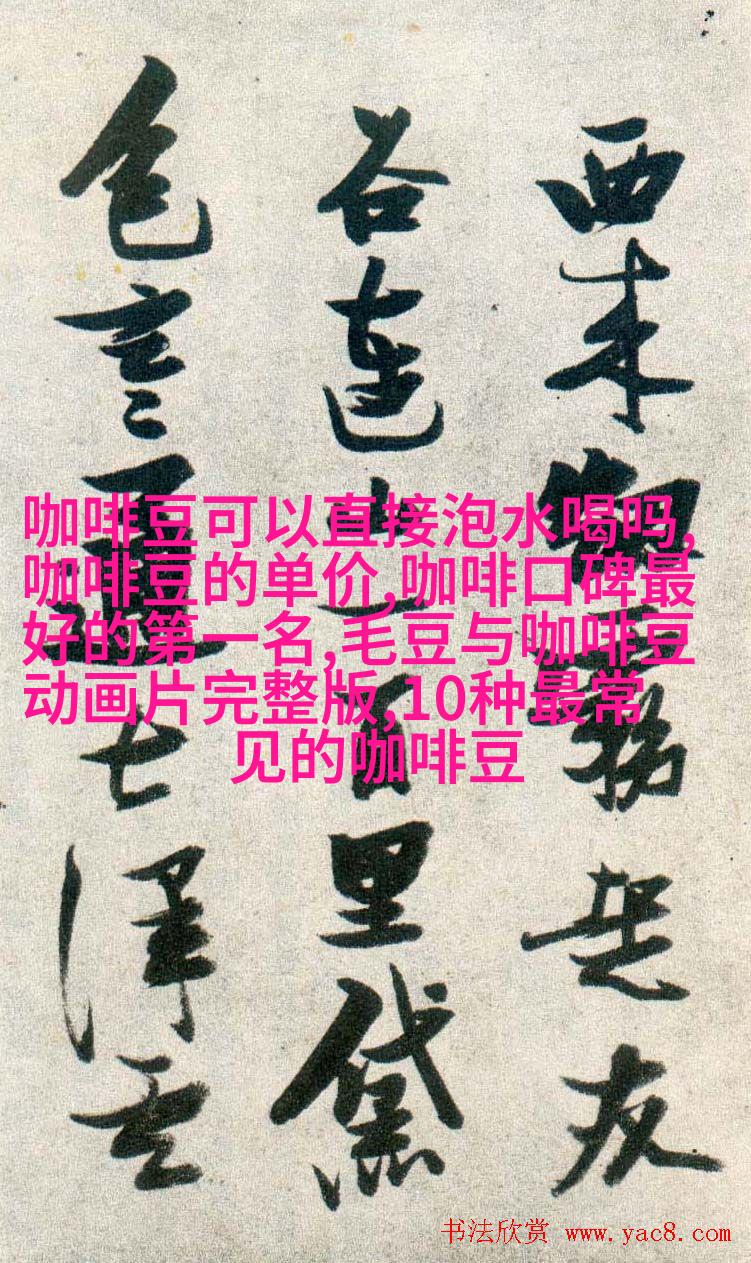 咖啡豆可以直接泡水喝吗,
咖啡豆的单价,咖啡口碑最
好的第一名,毛豆与咖啡豆
动画片完整版,10种最常
见的咖啡豆
西来
友
谷連山一百里黛
色言
七澤
书法欣赏 www.yac8.com